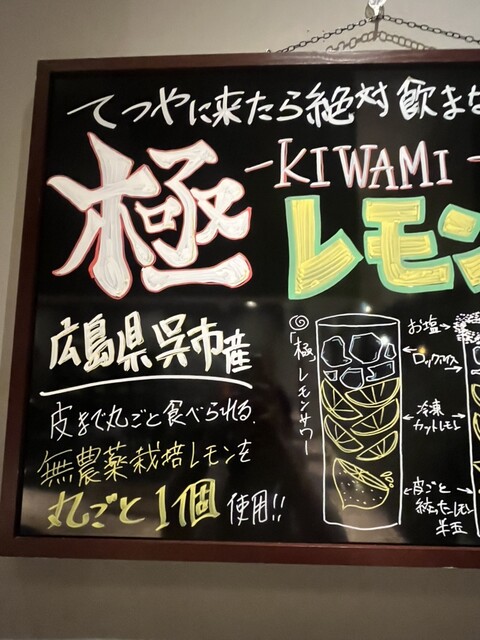 てつやに来たら絶対飲まな
極
-KIWAMI-
レモン
広島県呉市産
皮まで丸ごと食べられる、
無農薬栽培レモンを
丸ごと1個使用!!
「極」レモンサワー
お塩→
ロックアイス
冷凍
カットレモン
皮ごと
絞ったレモン
半玉